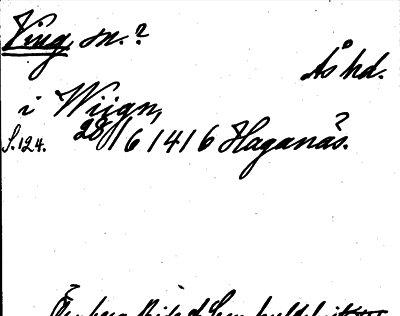 Ving, sn.?
Ås hd.
i Wiign,
S. 124. 28/6 1416 Haganäs.?